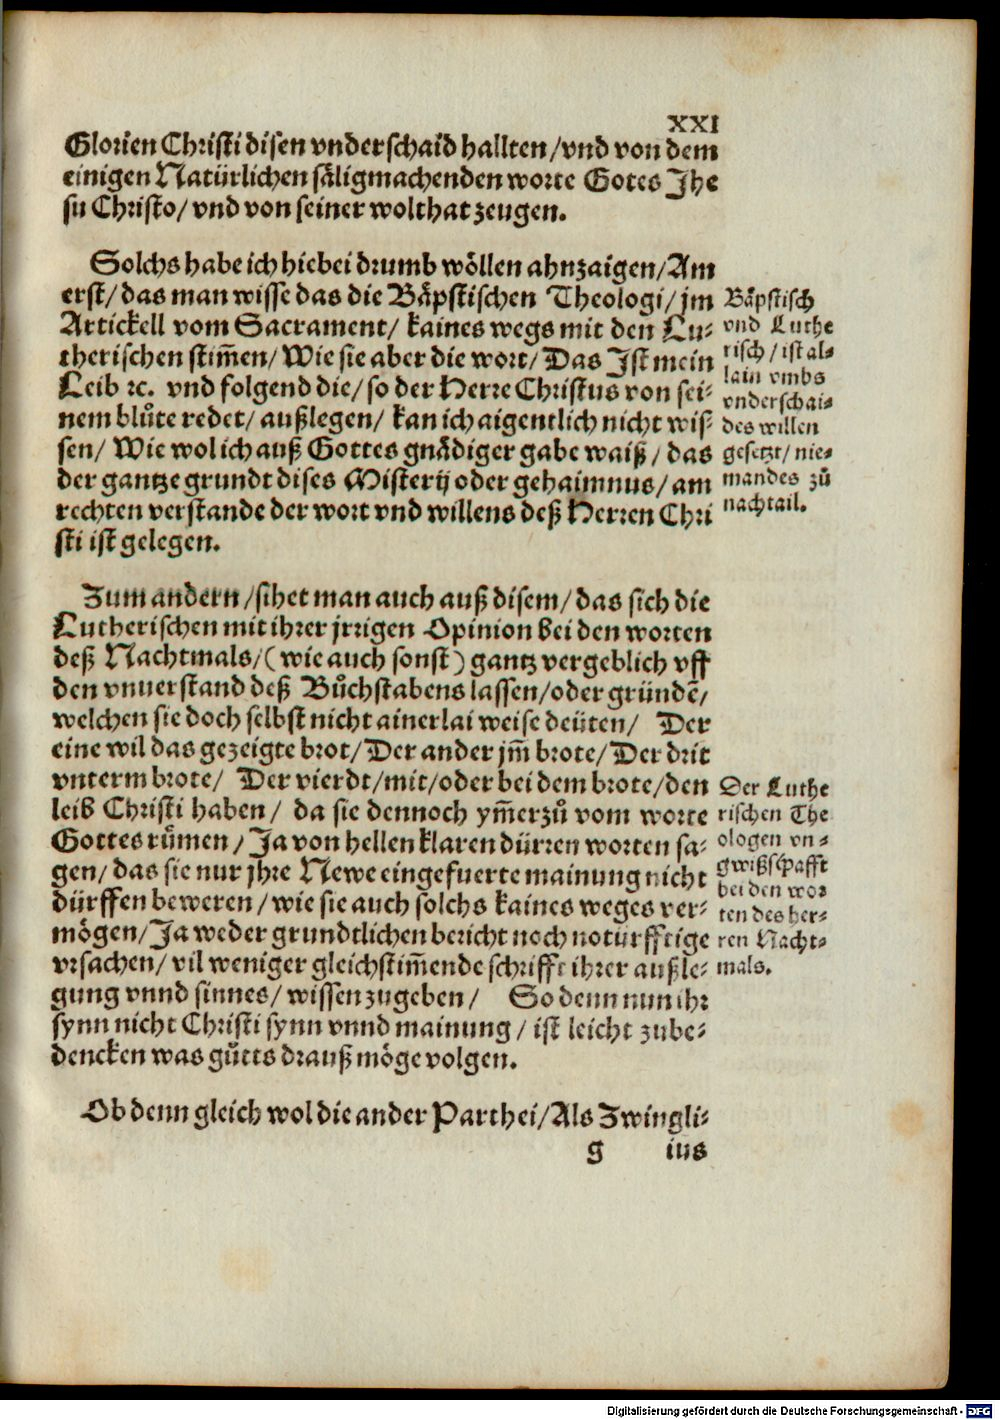 XXI
Glorien Christi disen vnderschaid hallten/vnd von dem
einigen Natürlichen säligmachenden worte Gotes Jhe
su Christo/ vnd von seiner wolthat zeugen.
Solchs habe ich hiebei drumb wöllen ahnzaigen/Am
erst/ das man wisse das die Bäpstischen Theologi/ jm
Artickell vom Sacrament/ kaines wegs mit den Lu-
therischen stim̄en/ Wie sie aber die wort/ Das Jst mein
Leib ꝛc. vnd folgend die/ so der Herre Christus von sei-
nem blůte redet/ außlegen/ kan ich aigentlich nicht wis-
sen/ Wie wol ich auß Gottes gnädiger gabe waiß/ das
der gantze grundt dises Misterij oder gehaimnus/ am
rechten verstande der wort vnd willens deß Herren Chri
sti ist gelegen.
Bäpstisch
vnd Luthe
risch/ ist al-
lain vmbs
vnderschai-
des willen
gesetzt/ nie-
mandes zů
nachtail.
Zum andern/ sihet man auch auß disem/ das sich die
Lutherischen mit ihrer jrrigen Opinion bei den worten
deß Nachtmals/ (wie auch sonst) gantz vergeblich vff
den vnuerstand deß Bůchstabens lassen/oder gründē/
welchen sie doch selbst nicht ainerlai weise deüten/ Der
eine wil das gezeigte brot/ Der ander jm̄ brote/ Der drit
vnterm brote/ Der vierdt/ mit/ oder bei dem brote/ den
leib Christi haben/ da sie dennoch ym̄erzů vom worte
Gottes růmen/ Ja von hellen klaren dürren worten sa-
gen/ das sie nur jhre Newe eingefuerte mainung nicht
dürffen beweren/ wie sie auch solchs kaines weges ver-
mögen/ Ja weder grundtlichen bericht noch noturfftige
vrsachen/ vil weniger gleichstim̄ende schrifft ihrer außle-
gung vnnd sinnes/ wissen zugeben/ So denn nun ihr
synn nicht Christi synn vnnd mainung/ ist leicht zube-
dencken was gůtts drauß möge volgen.
Der Luthe
rischen The
ologen vn-
gwißschafft
bei den wor
ten des her-
ren Nacht-
mals.
Ob denn gleich wol die ander Parthei/ Als Zwingli-
g ius
Digitalisierung gefördert durch die Deutsche Forschungsgemeinschaft - DFG